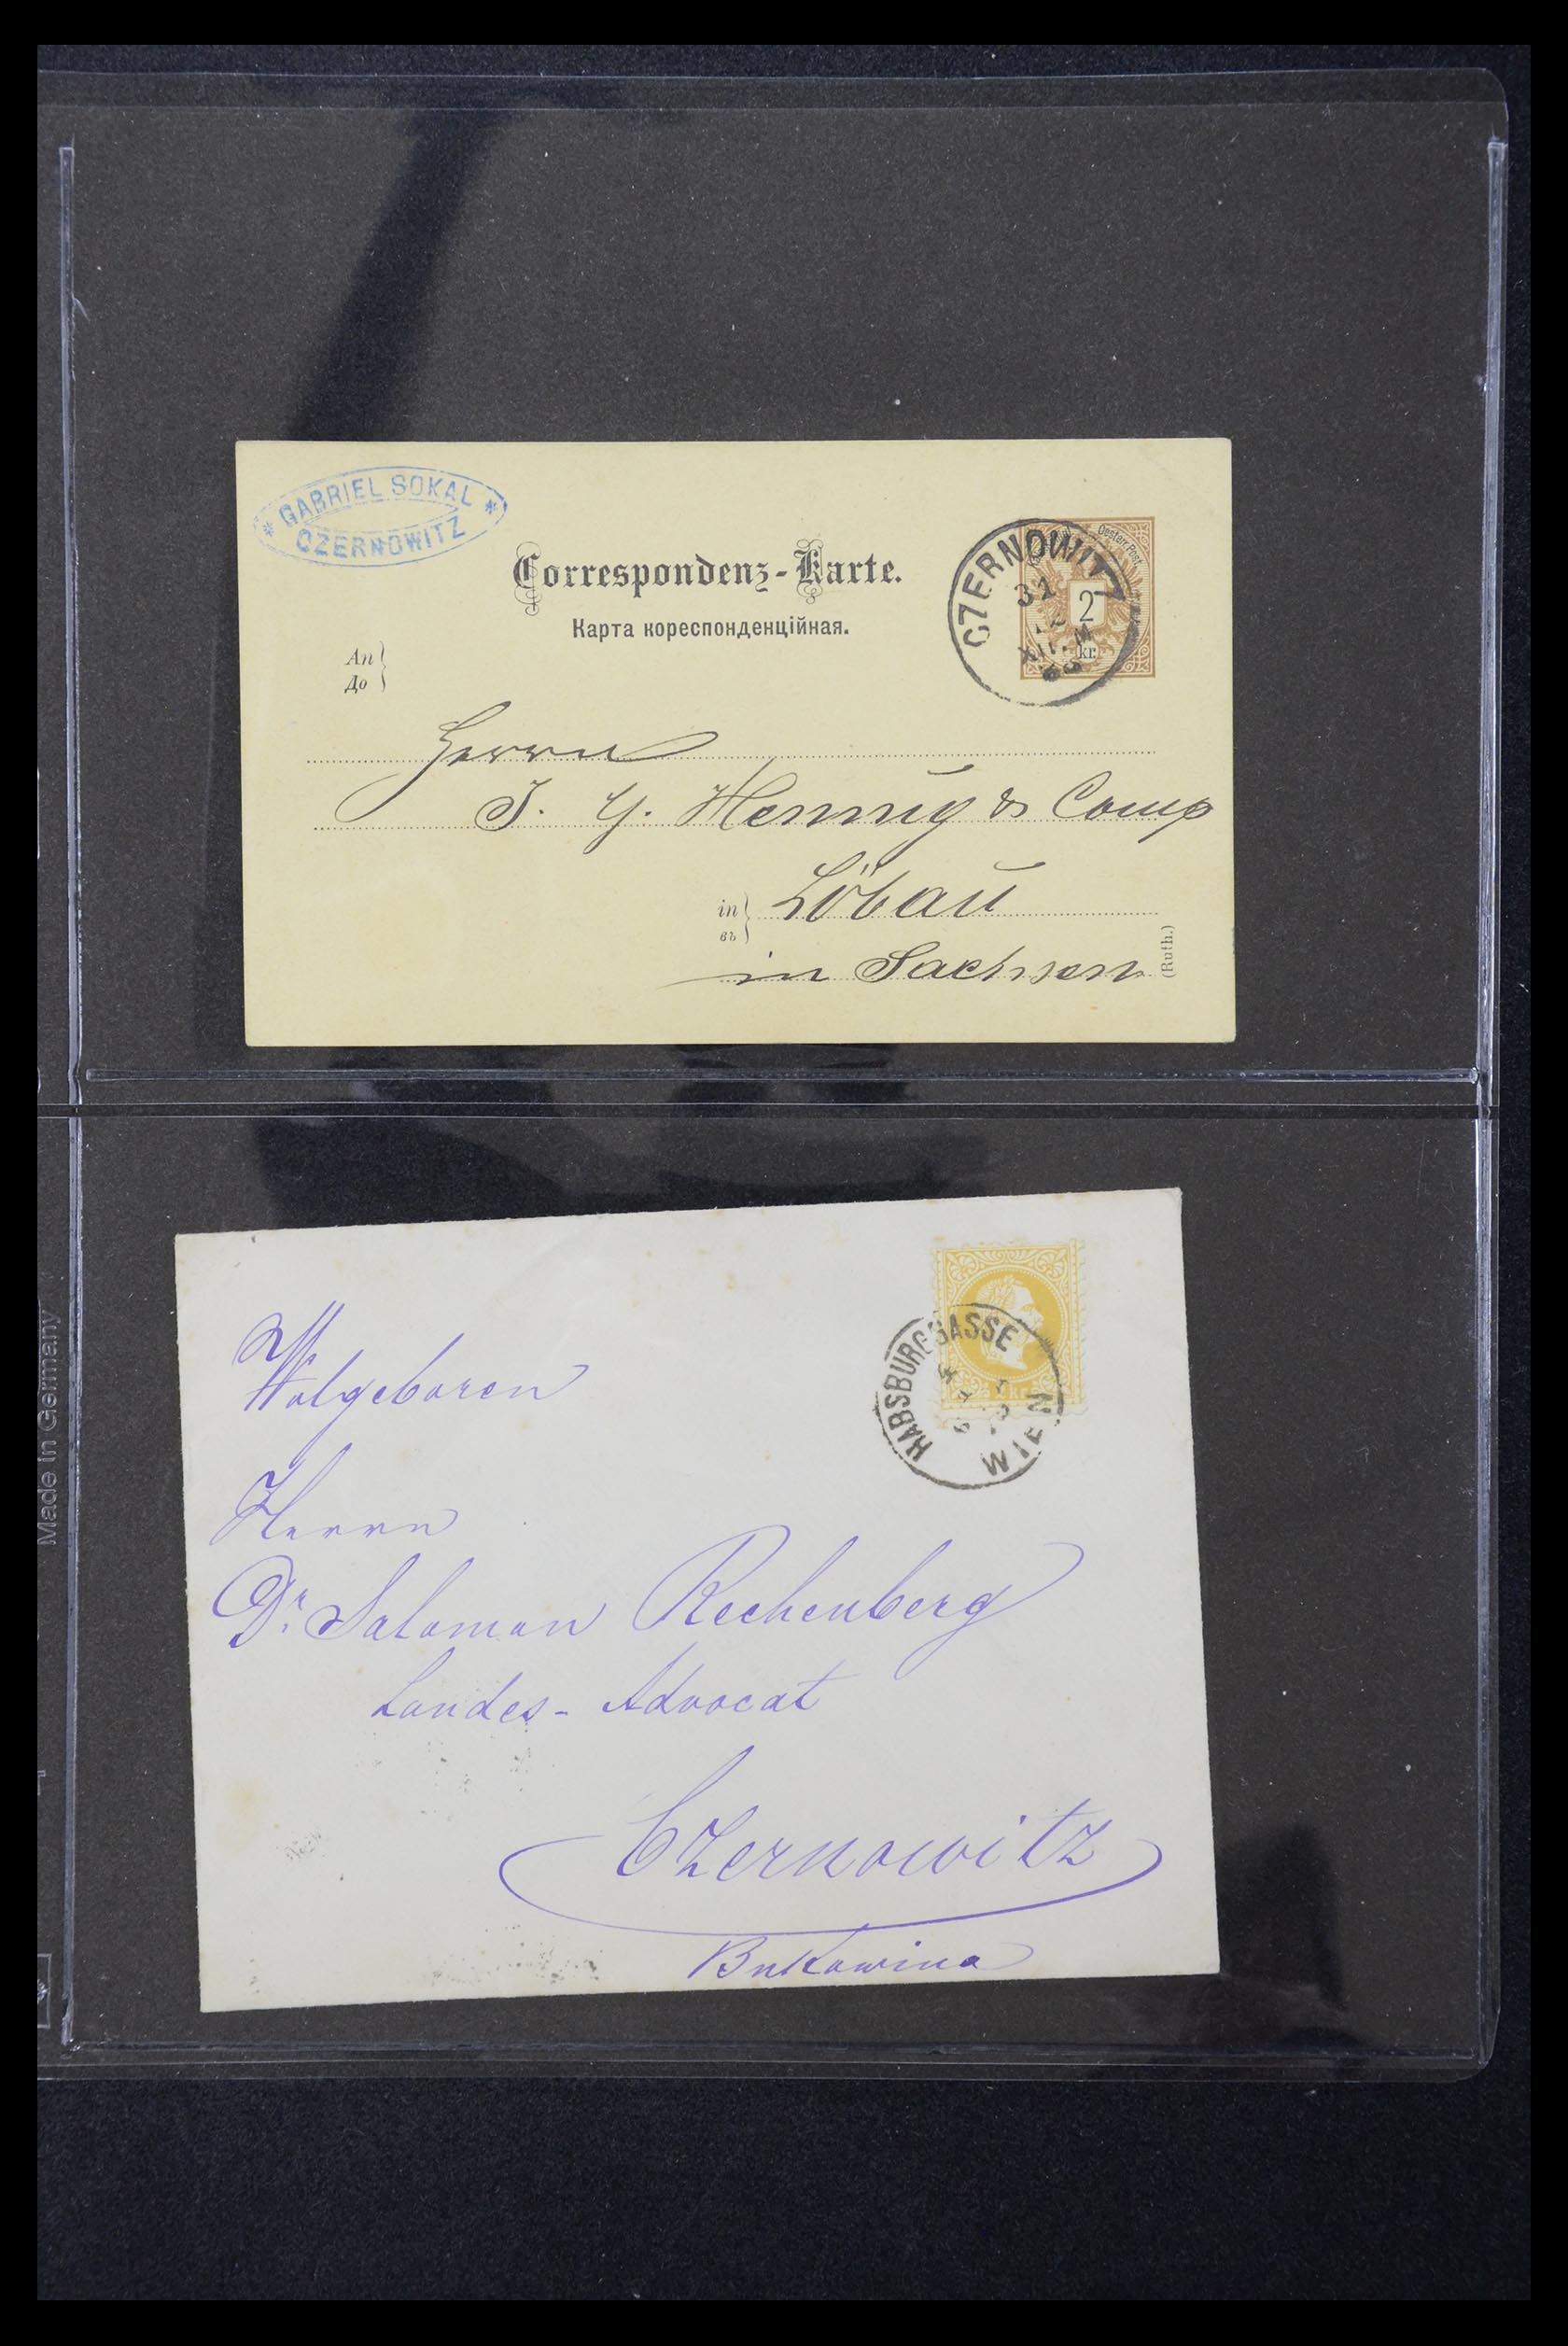 GABRIEL SOKAL
CZERNOWITZ
Correspondenz-Karte.
Карта кореспонденційная.
CZERNOWITZ
31
XII
Oesterr. Post.
2
kr.
An
До
Herrn
J. G. Hennig & Comp
in
въ
Löbau
in Sachsen
(Ruth.)
HABSBURGGASSE
WIEN
Wolgeboren
Herrn
Dr. Salomon Rechenberg
Landes-Advocat
Czernowitz
Bukowina
Made in Germany